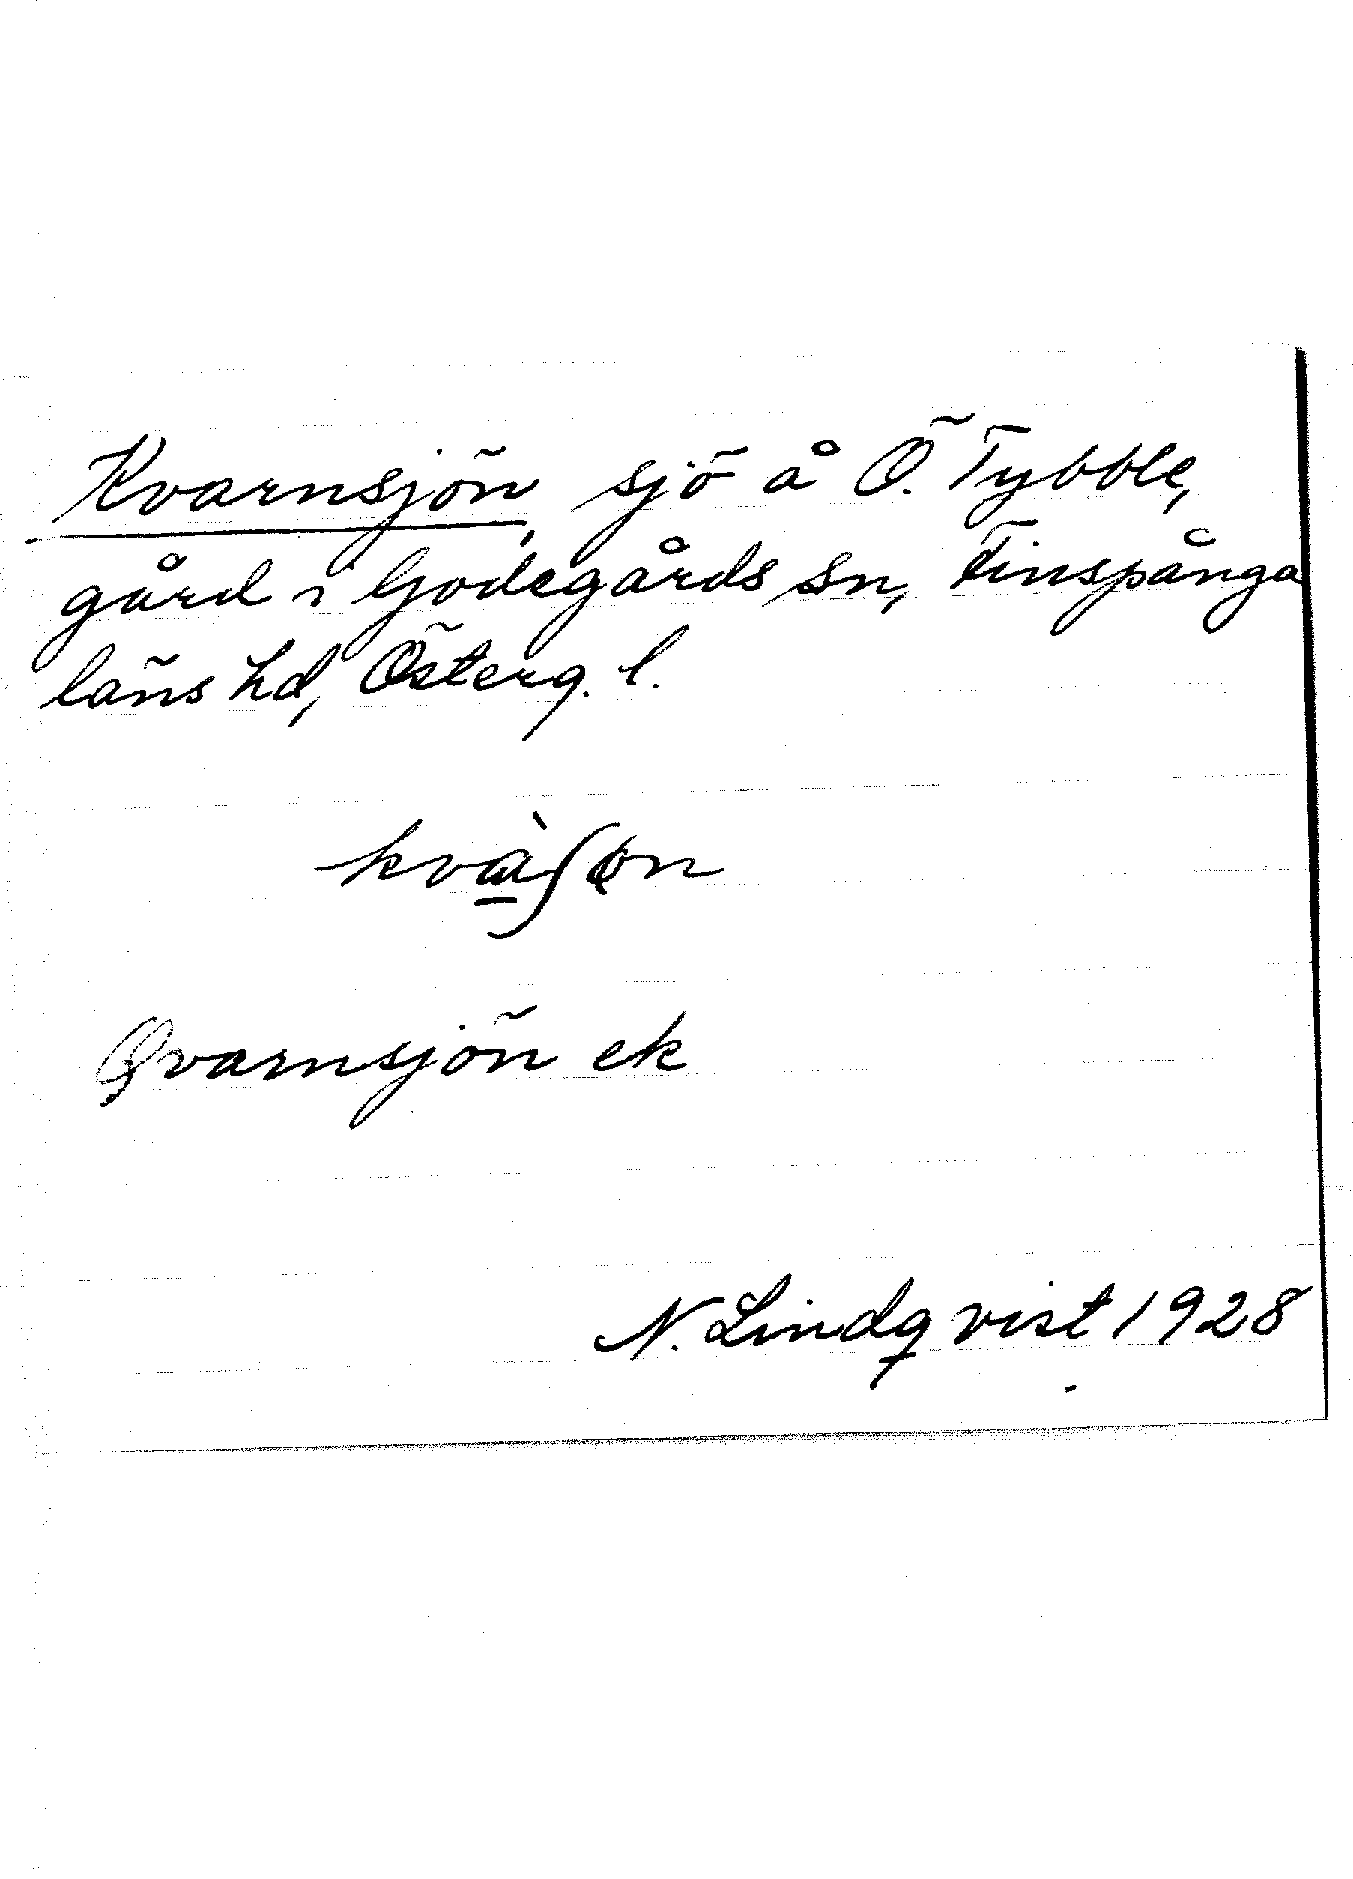 Kvarnsjön, sjö å Ö. Tybble,
gård i Godegårds sn, Finspånga
läns hd, Österg. l.
Qvarnsjön ek
N. Lindqvist 1928